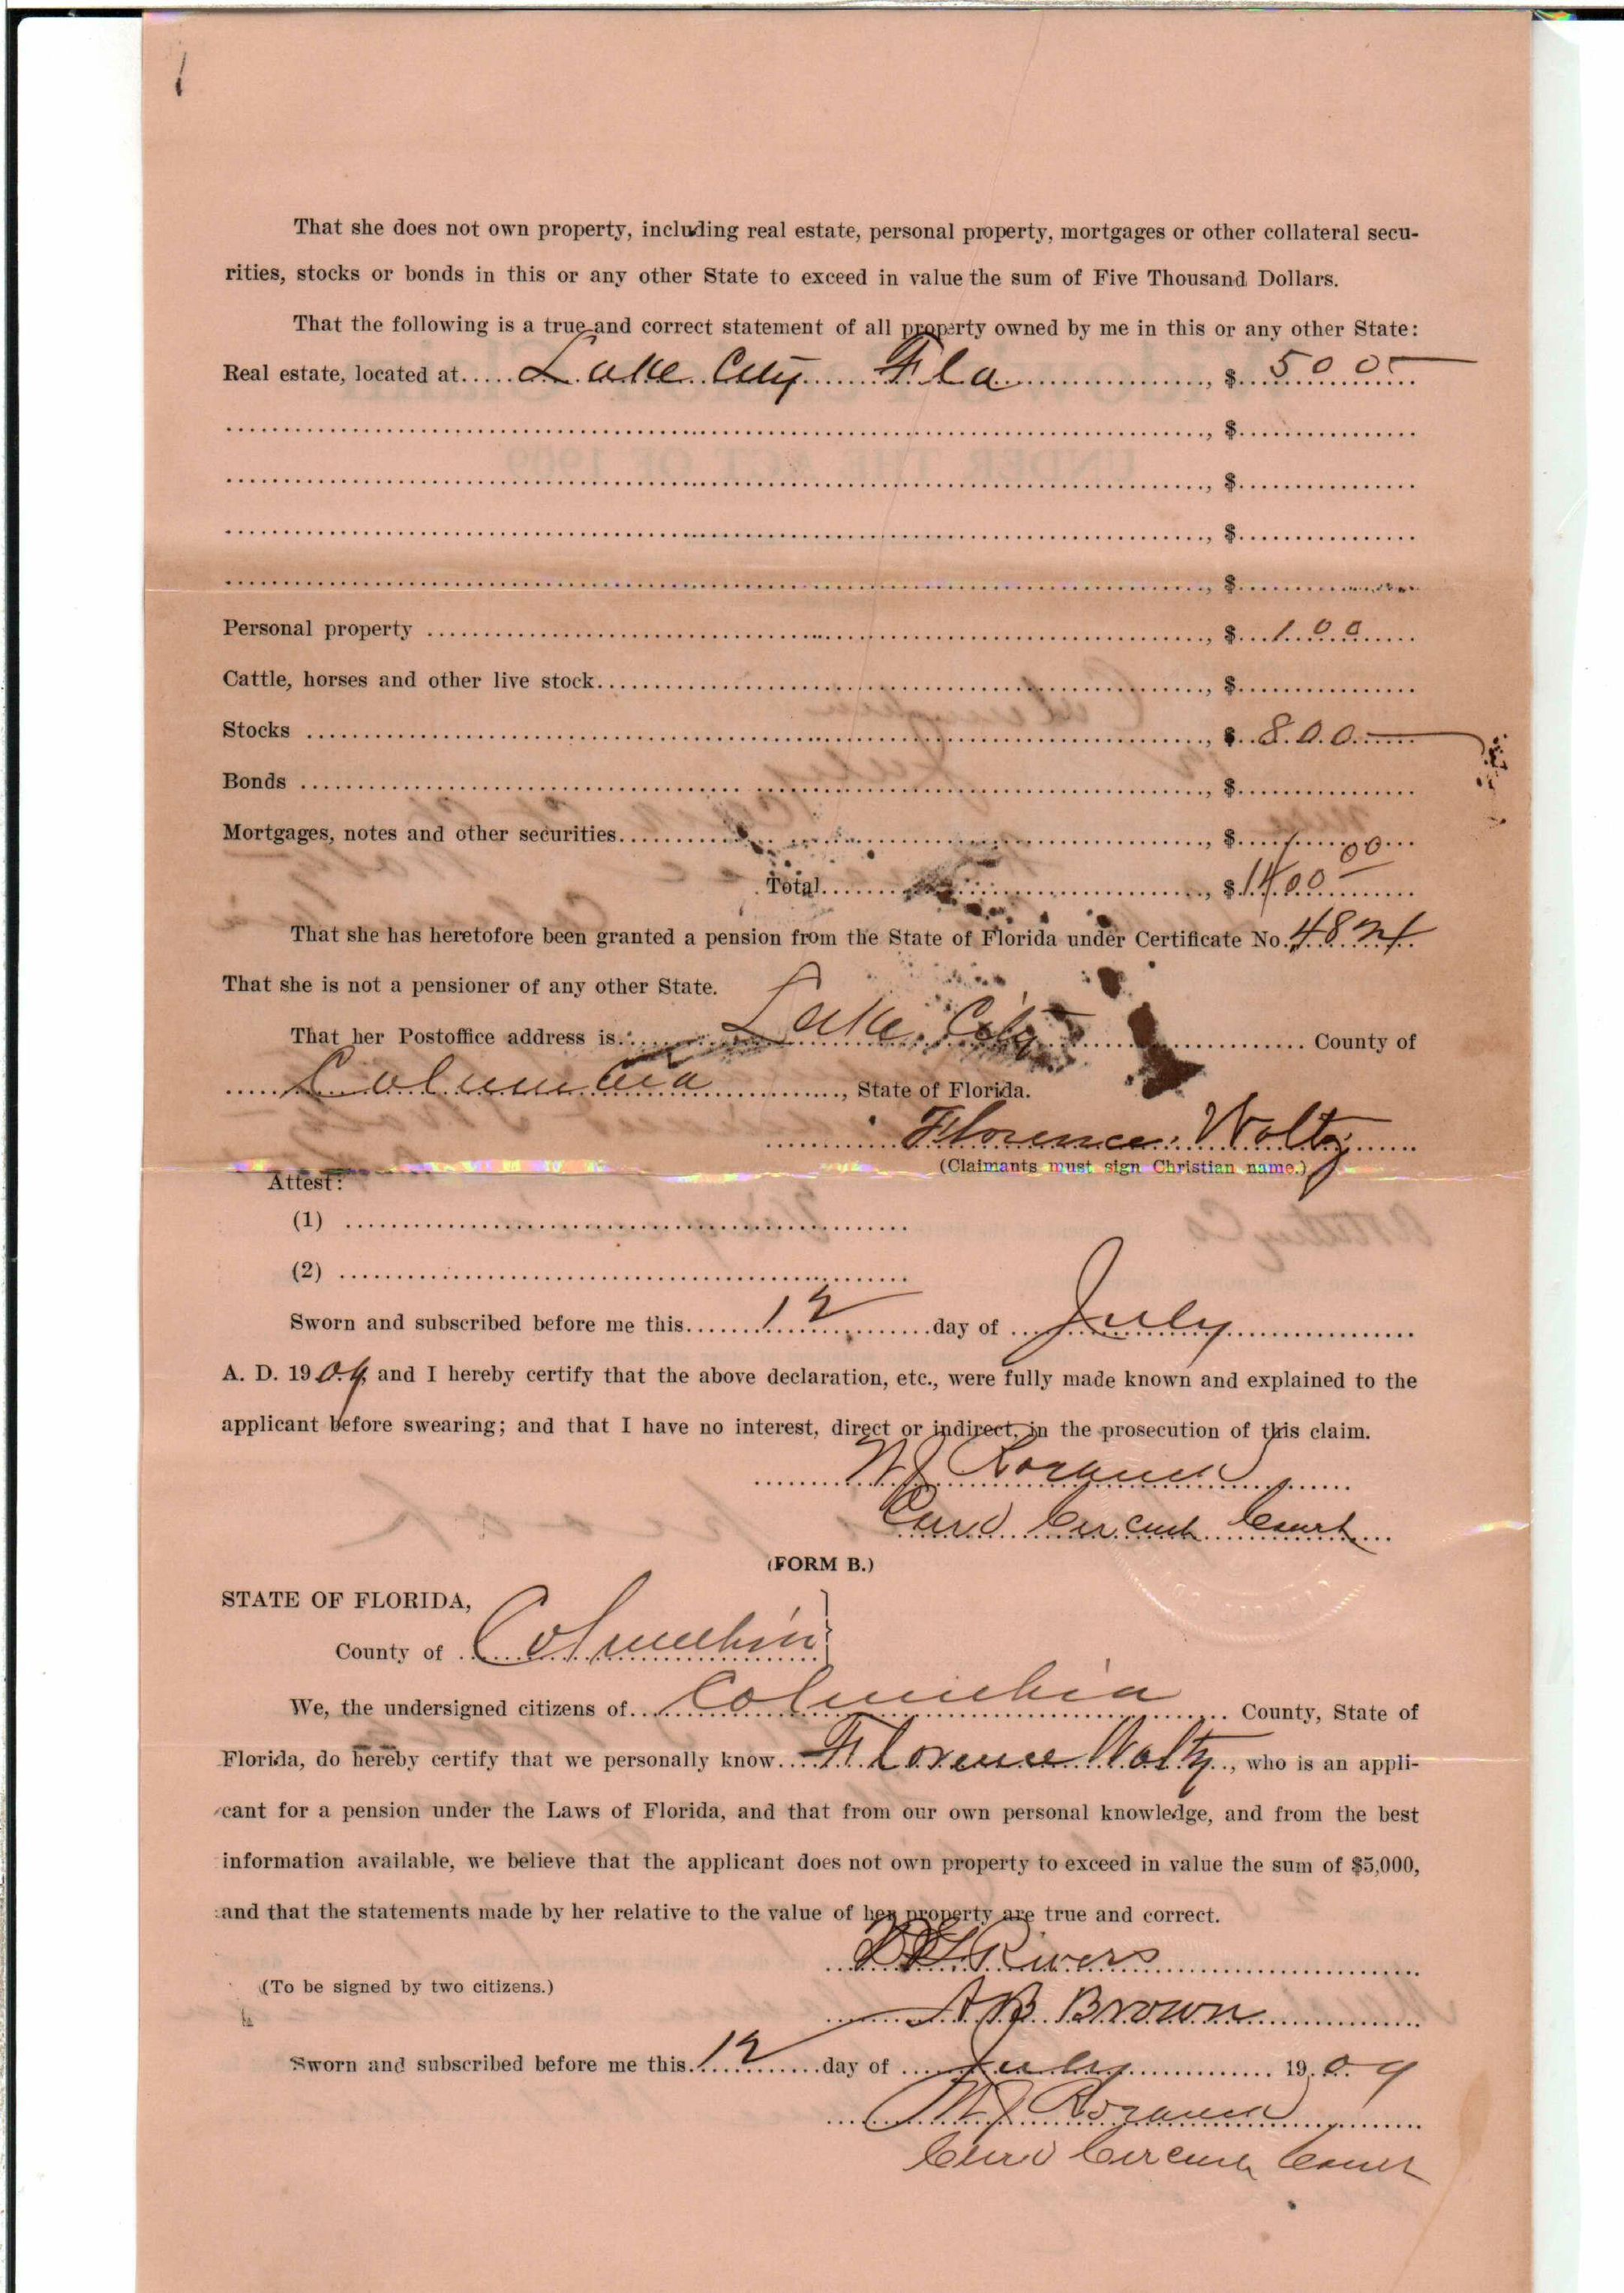 That she does not own property, including real estate, personal property, mortgages or other collateral secu-
rities, stocks or bonds in this or any other State to exceed in value the sum of Five Thousand Dollars.
That the following is a true and correct statement of all property owned by me in this or any other State:
Real estate, located at Lake City Fla , $ 500
, $
, $
, $
, $
Personal property , $ 100
Cattle, horses and other live stock , $
Stocks , $ 800
Bonds , $
Mortgages, notes and other securities , $
Total , $ 1400
That she has heretofore been granted a pension from the State of Florida under Certificate No. 4824
That she is not a pensioner of any other State.
That her Postoffice address is Lake City County of
Columbia , State of Florida.
Florence Woltz
(Claimants must sign Christian name.)
Attest:
(1)
(2)
Sworn and subscribed before me this 12 day of July
A. D. 1909, and I hereby certify that the above declaration, etc., were fully made known and explained to the
applicant before swearing; and that I have no interest, direct or indirect, in the prosecution of this claim.
Circuit Court
(FORM B.)
STATE OF FLORIDA,
County of Columbia
We, the undersigned citizens of Columbia County, State of
Florida, do hereby certify that we personally know Florence Woltz, who is an appli-
cant for a pension under the Laws of Florida, and that from our own personal knowledge, and from the best
information available, we believe that the applicant does not own property to exceed in value the sum of $5,000,
and that the statements made by her relative to the value of her property are true and correct.
Rivers
(To be signed by two citizens.)
A B Brown
Sworn and subscribed before me this 12 day of July 1909
Circuit Court